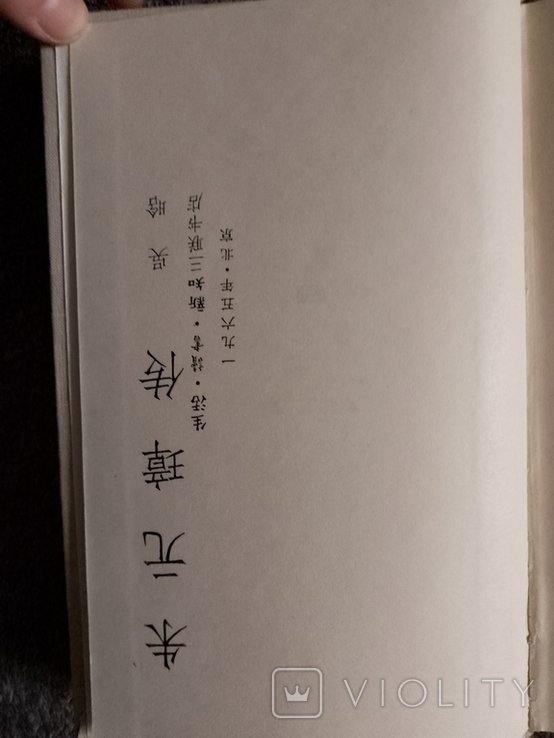 朱元璋传
吴晗
生活·讀書·新知三联书店
一九六五年·北京
VIOLITY